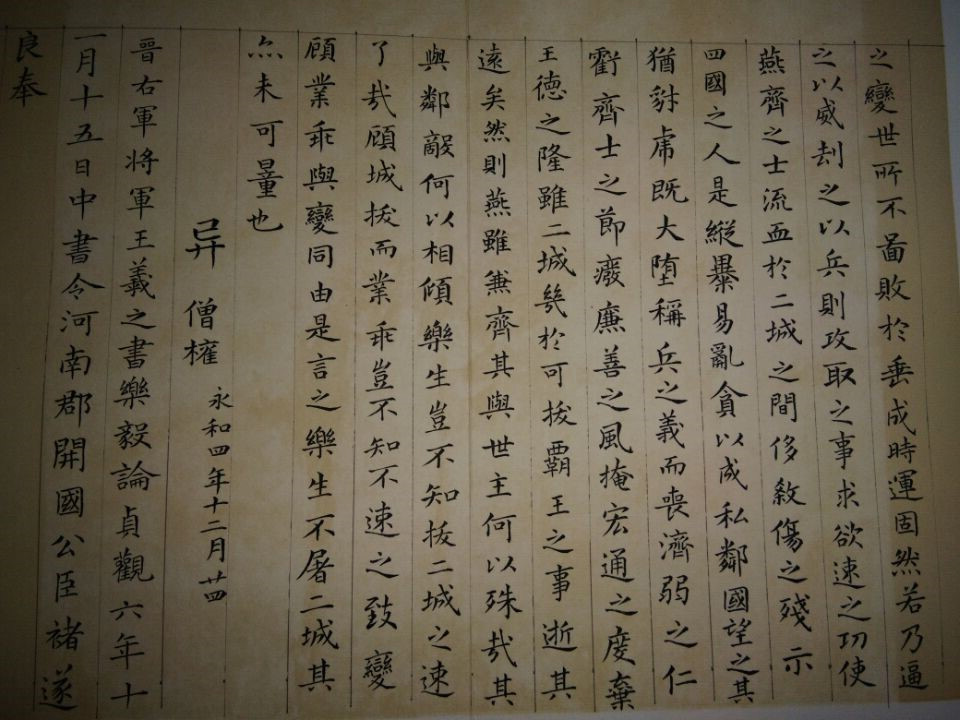 之變世所不啚敗於垂成時運固然若乃逼
之以威刦之以兵則攻取之事求欲速之㓛使
燕齊之士流血於二城之間侈敘傷之殘示
四國之人是縱暴易亂貪以成私鄰國望之其
猶豺虎既大墮稱兵之義而喪濟弱之仁
虧齊士之節癈廉善之風掩宏通之度棄
王德之隆雖二城㡬於可拔霸王之事逝其
遠矣然則燕雖兼齊其與世主何以殊㢤其
與鄰敵何以相傾樂生豈不知拔二城之速
了㢤顧城拔而業乖豈不知不速之致變
顧業乖與變同由是言之樂生不屠二城其
亦未可量也
异 僧權 永和四年十二月廿四
晉右軍將軍王羲之書樂毅論貞觀六年十
一月十五日中書令河南郡開國公臣褚遂
良奉